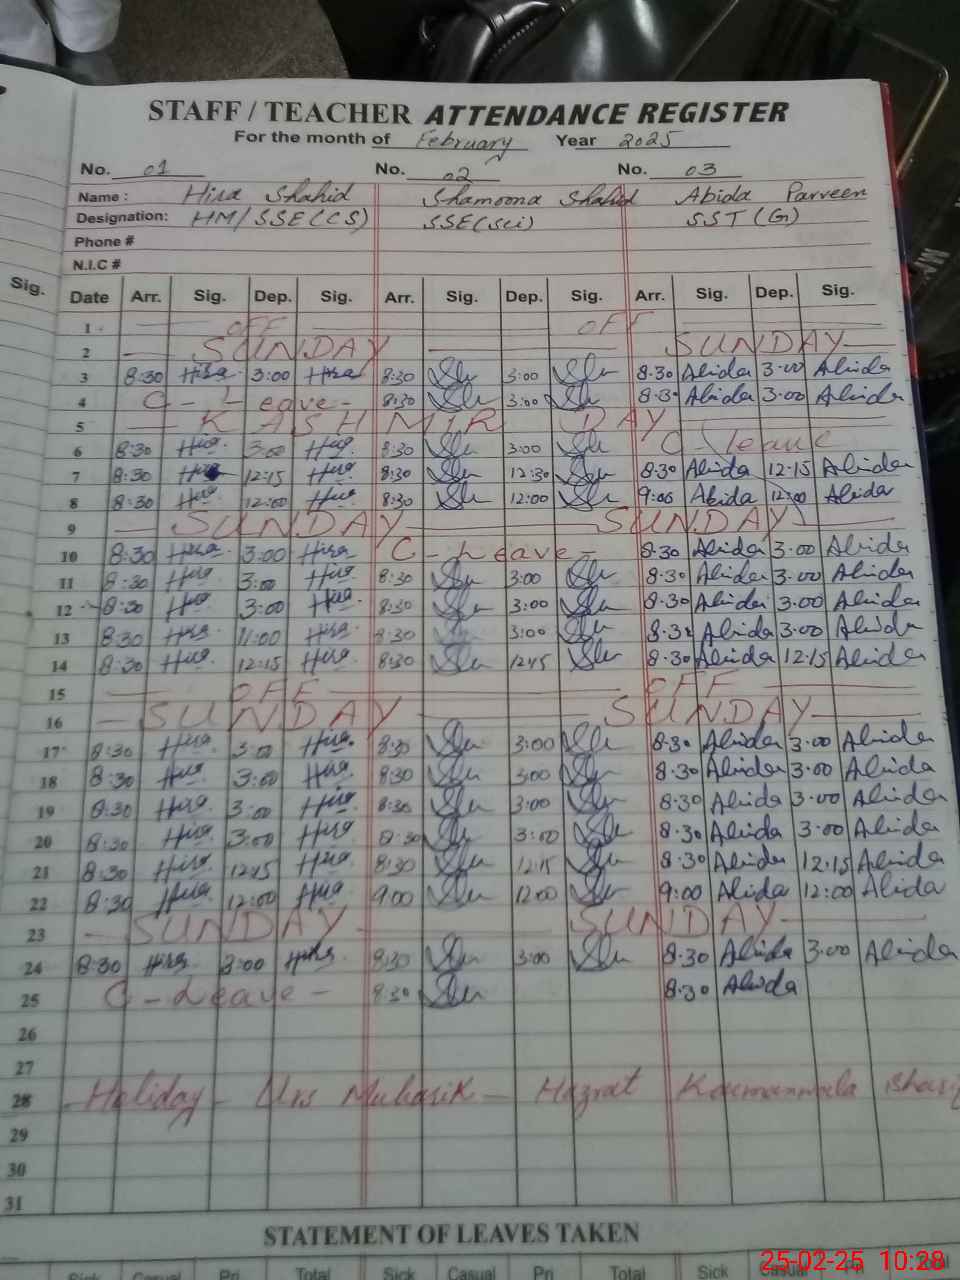 STAFF / TEACHER ATTENDANCE REGISTER
For the month of February Year 2025
No. 01 No. 02 No. 03
Name : Hira Shahid Shamoona Shahid Abida Parveen
Designation: HM/SSE(CS) SSE(Sci) SST(G)
Phone #
N.I.C #
Sig. Date Arr. Sig. Dep. Sig. Arr. Sig. Dep. Sig. Arr. Sig. Dep. Sig.
1 OFF OFF
2 SUNDAY SUNDAY
3 8:30 Hira 3:00 Hira 8:30 3:00 8:30 Abida 3:00 Abida
4 C - Leave - 8:30 3:00 8:30 Abida 3:00 Abida
5 KASHMIR DAY
6 8:30 Hira 3:00 Hira 8:30 3:00 C - leave
7 8:30 Hira 12:15 Hira 8:30 12:30 8:30 Abida 12:15 Abida
8 8:30 Hira 12:00 Hira 8:30 12:00 9:00 Abida 12:00 Abida
9 SUNDAY SUNDAY
10 8:30 Hira 3:00 Hira C - Leave - 8:30 Abida 3:00 Abida
11 8:30 Hira 3:00 Hira 8:30 3:00 8:30 Abida 3:00 Abida
12 8:30 Hira 3:00 Hira 8:30 3:00 8:30 Abida 3:00 Abida
13 8:30 Hira 11:00 Hira 8:30 3:00 8:30 Abida 3:00 Abida
14 8:30 Hira 12:15 Hira 8:30 12:15 8:30 Abida 12:15 Abida
15 OFF OFF
16 SUNDAY SUNDAY
17 8:30 Hira 3:00 Hira 8:30 3:00 8:30 Abida 3:00 Abida
18 8:30 Hira 3:00 Hira 8:30 3:00 8:30 Abida 3:00 Abida
19 8:30 Hira 3:00 Hira 8:30 3:00 8:30 Abida 3:00 Abida
20 8:30 Hira 3:00 Hira 8:30 3:00 8:30 Abida 3:00 Abida
21 8:30 Hira 12:15 Hira 8:30 12:15 8:30 Abida 12:15 Abida
22 8:30 Hira 12:00 Hira 9:00 12:00 9:00 Abida 12:00 Abida
23 SUNDAY SUNDAY
24 8:30 Hira 3:00 Hira 8:30 3:00 8:30 Abida 3:00 Abida
25 C - Leave - 8:30 8:30 Abida
26
27
28 Holiday - Urs Mubarik - Hazrat
29
30
31
STATEMENT OF LEAVES TAKEN
Sick Casual Pri Total Sick Casual Pri Total Sick Casual
25-02-25 10:28